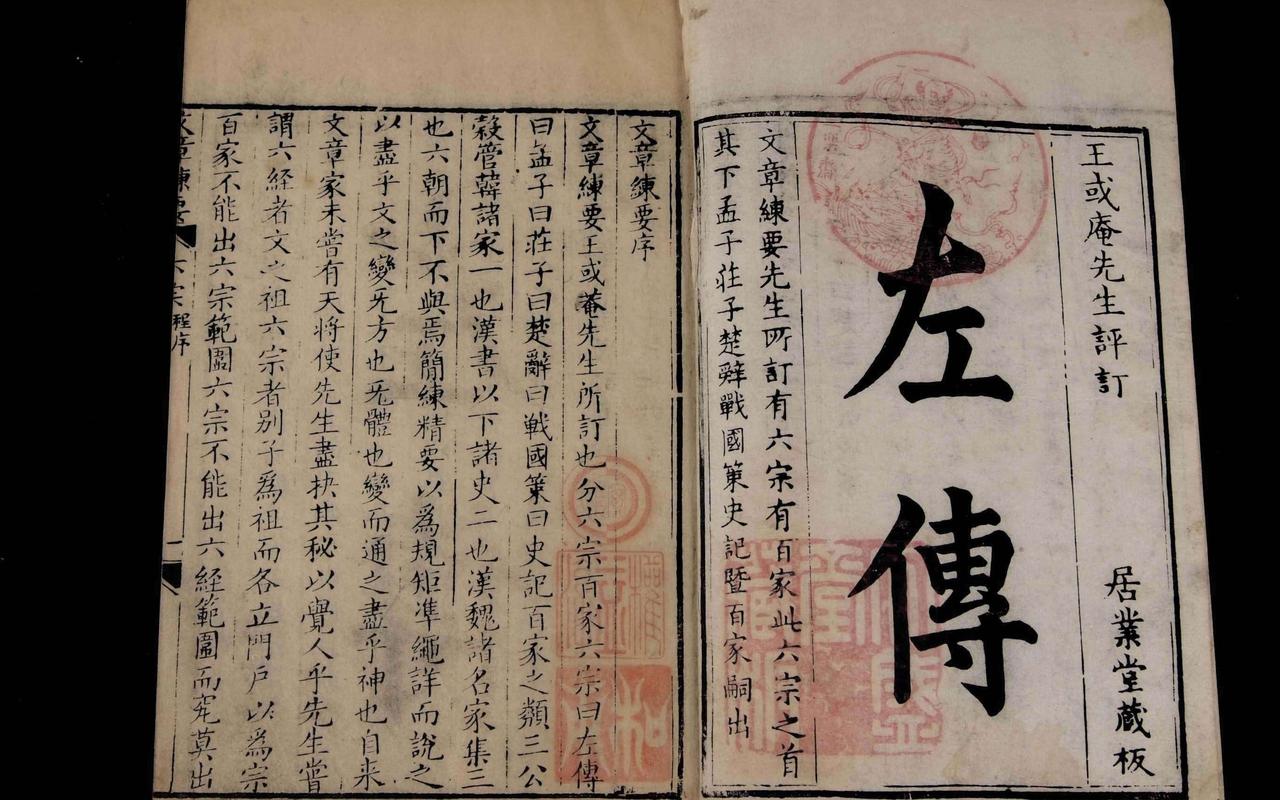 王或庵先生評訂
居業堂蔵板
左傳
文章練要先生所訂有六宗有百家此六宗之首
其下孟子莊子楚辭戰國策史記暨百家嗣出
文章練要序
文章練要王或菴先生所訂也分六宗百家六宗曰左傳
曰孟子曰莊子曰楚辭曰戰國策曰史記百家之類三公
穀管韓諸家一也漢書以下諸史二也漢魏諸名家集三
也六朝而下不與焉簡練精要以爲規矩準繩詳而說之
以盡乎文之變旡方也旡體也變而通之盡乎神也自来
文章家未嘗有天将使先生盡抉其秘以覺人乎先生嘗
謂六経者文之祖六宗者别子爲祖而各立門戶以爲宗
百家不能出六宗範圍六宗不能出六経範圍而究莫出
文章練要
六宗程序
一